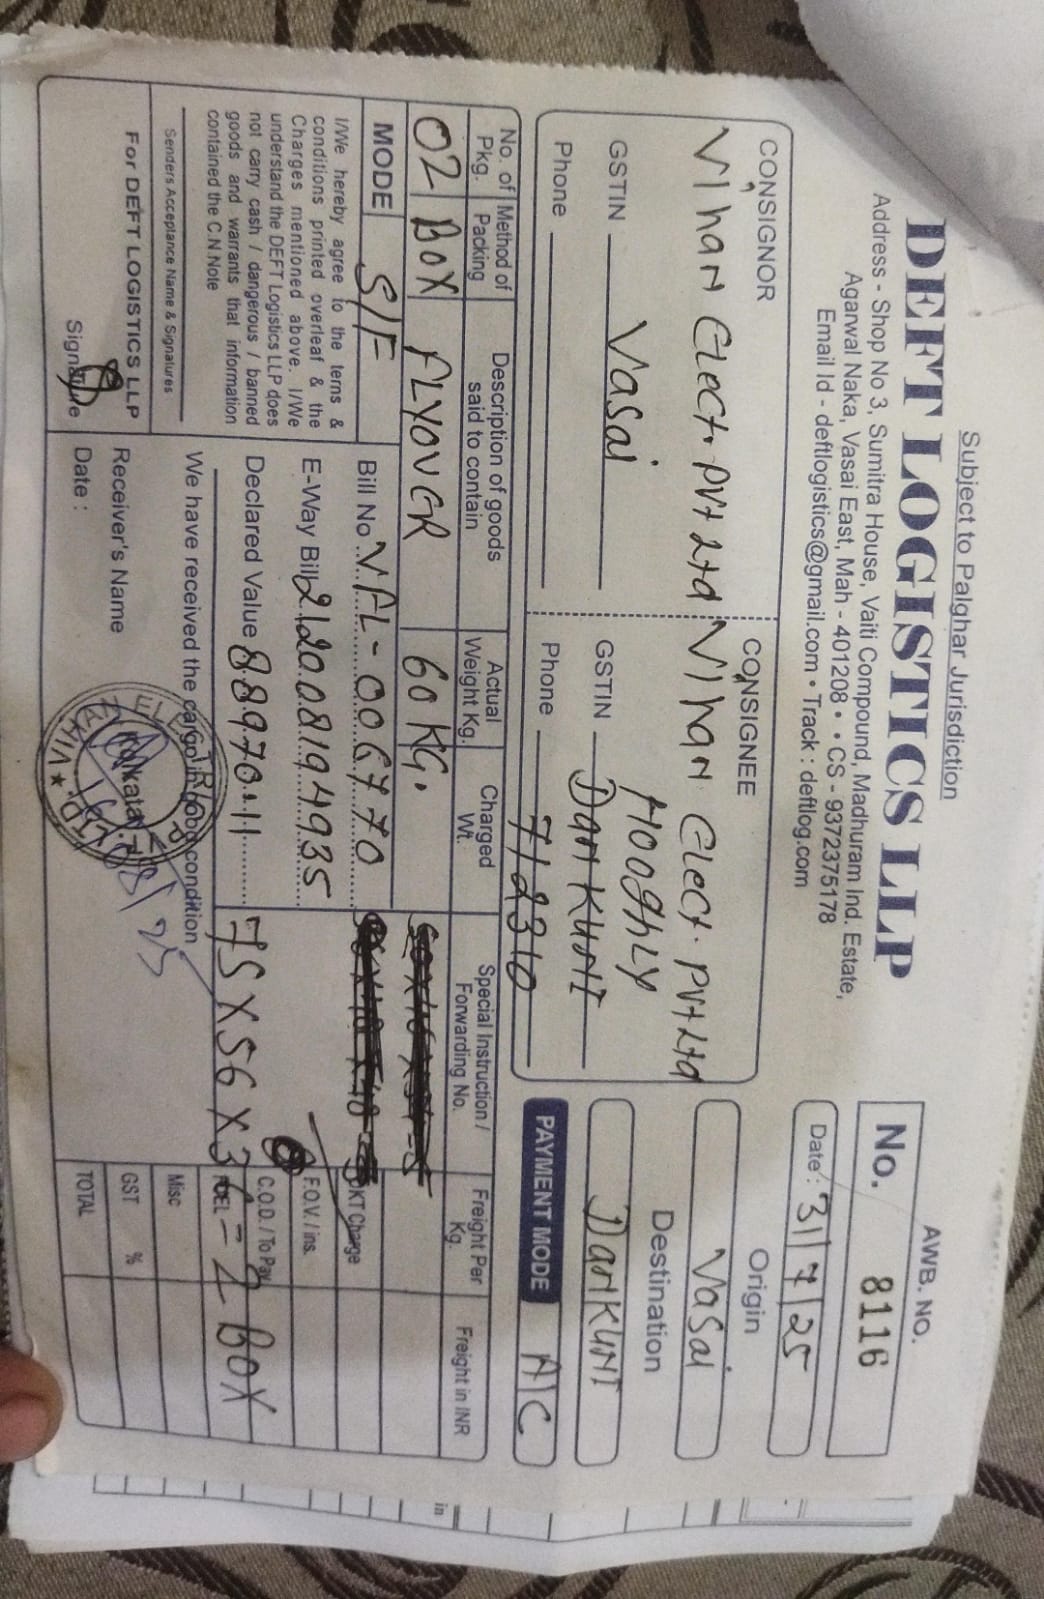 Subject to Palghar Jurisdiction
DEFT LOGISTICS LLP
Address - Shop No 3, Sumitra House, Vaiti Compound, Madhuram Ind. Estate,
Agarwal Naka, Vasai East, Mah - 401208 • • CS - 9372375178
Email Id - deftlogistics@gmail.com • Track : deftlog.com
AWB. NO.
No. 8116
Date : 31/7/25
CONSIGNOR
Vihan Elect. Pvt Ltd
Vasai
GSTIN
Phone
CONSIGNEE
Vihan Elect. Pvt Ltd
Hooghly
GSTIN DanKUNI
Phone 712310
Origin
Vasai
Destination
DanKUNI
PAYMENT MODE A/C
No. of Pkg.
Method of Packing
Description of goods said to contain
Actual Weight Kg.
Charged Wt.
Special Instruction / Forwarding No.
Freight Per Kg.
Freight in INR
02 BOX FLYOVER 60 KG.
MODE S/F
Bill No VFL-006770
E-Way Bill 212008194935
Declared Value 88970.11
75X56X37=2 BOX
DKT Charge
F.O.V. / ins.
C.O.D. / To Pay
DEL
Misc
GST %
TOTAL
I/We hereby agree to the terns &
conditions printed overleaf & the
Charges mentioned above. I/We
understand the DEFT Logistics LLP does
not carry cash / dangerous / banned
goods and warrants that information
contained the C.N.Note
Senders Acceptance Name & Signatures
For DEFT LOGISTICS LLP
Signature
We have received the cargo in good condition
Receiver's Name
Date :
Kolkata
in